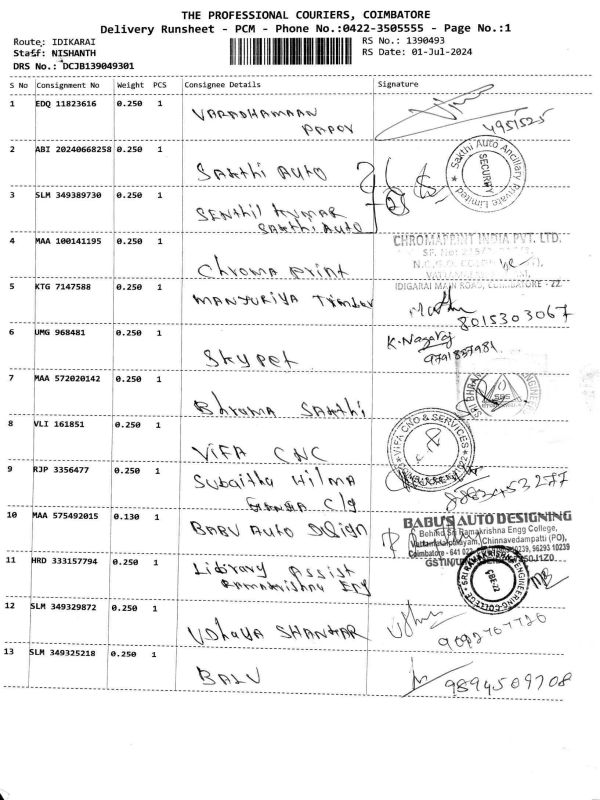 THE PROFESSIONAL COURIERS, COIMBATORE
Delivery Runsheet - PCM - Phone No.:0422-3505555 - Page No.:1
Route: IDIKARAI RS No.: 1390493
Staff: NISHANTH RS Date: 01-Jul-2024
DRS No.: DCJB139049301
S No Consignment No Weight PCS Consignee Details Signature
1 EDQ 11823616 0.250 1 VARADHAMAAN
PAPOV
4951525
2 ABI 20240668258 0.250 1 SAKTHI AUTO
Sakthi Auto Ancillary Private Limited
SECURITY
3 SLM 349389730 0.250 1 SENTHIL KUMAR
SAKTHI AUTO
4 MAA 100141195 0.250 1 Chroma Print
CHROMAPRINT INDIA PVT. LTD.
IDIGARAI MAIN ROAD, COIMBATORE - 22
5 KTG 7147588 0.250 1 MANJURIYA Timber
8015303067
6 UMG 968481 0.250 1 Skypet
K. Nagaraj
9791857981
7 MAA 572020142 0.250 1 Bhroma SAKTHI
8 VLI 161851 0.250 1 VIFA CNC
VIFA CNC & SERVICES
9 RJP 3356477 0.250 1 Subaitha Hilma
Ganga C/g
8883453277
10 MAA 575492015 0.130 1 BABU Auto Design
BABU'S AUTO DESIGNING
Behind Sri Ramakrishna Engg College,
Vattamalaipalayam, Chinnavedampatti (PO),
11 HRD 333157794 0.250 1 Library Assist
Ramakrishna Eng
SRI RAMAKRISHNA ENGINEERING COLLEGE
CBE-22
12 SLM 349329872 0.250 1 UDhaya SHANKAR
9092707726
13 SLM 349325218 0.250 1 BALU
9894509708